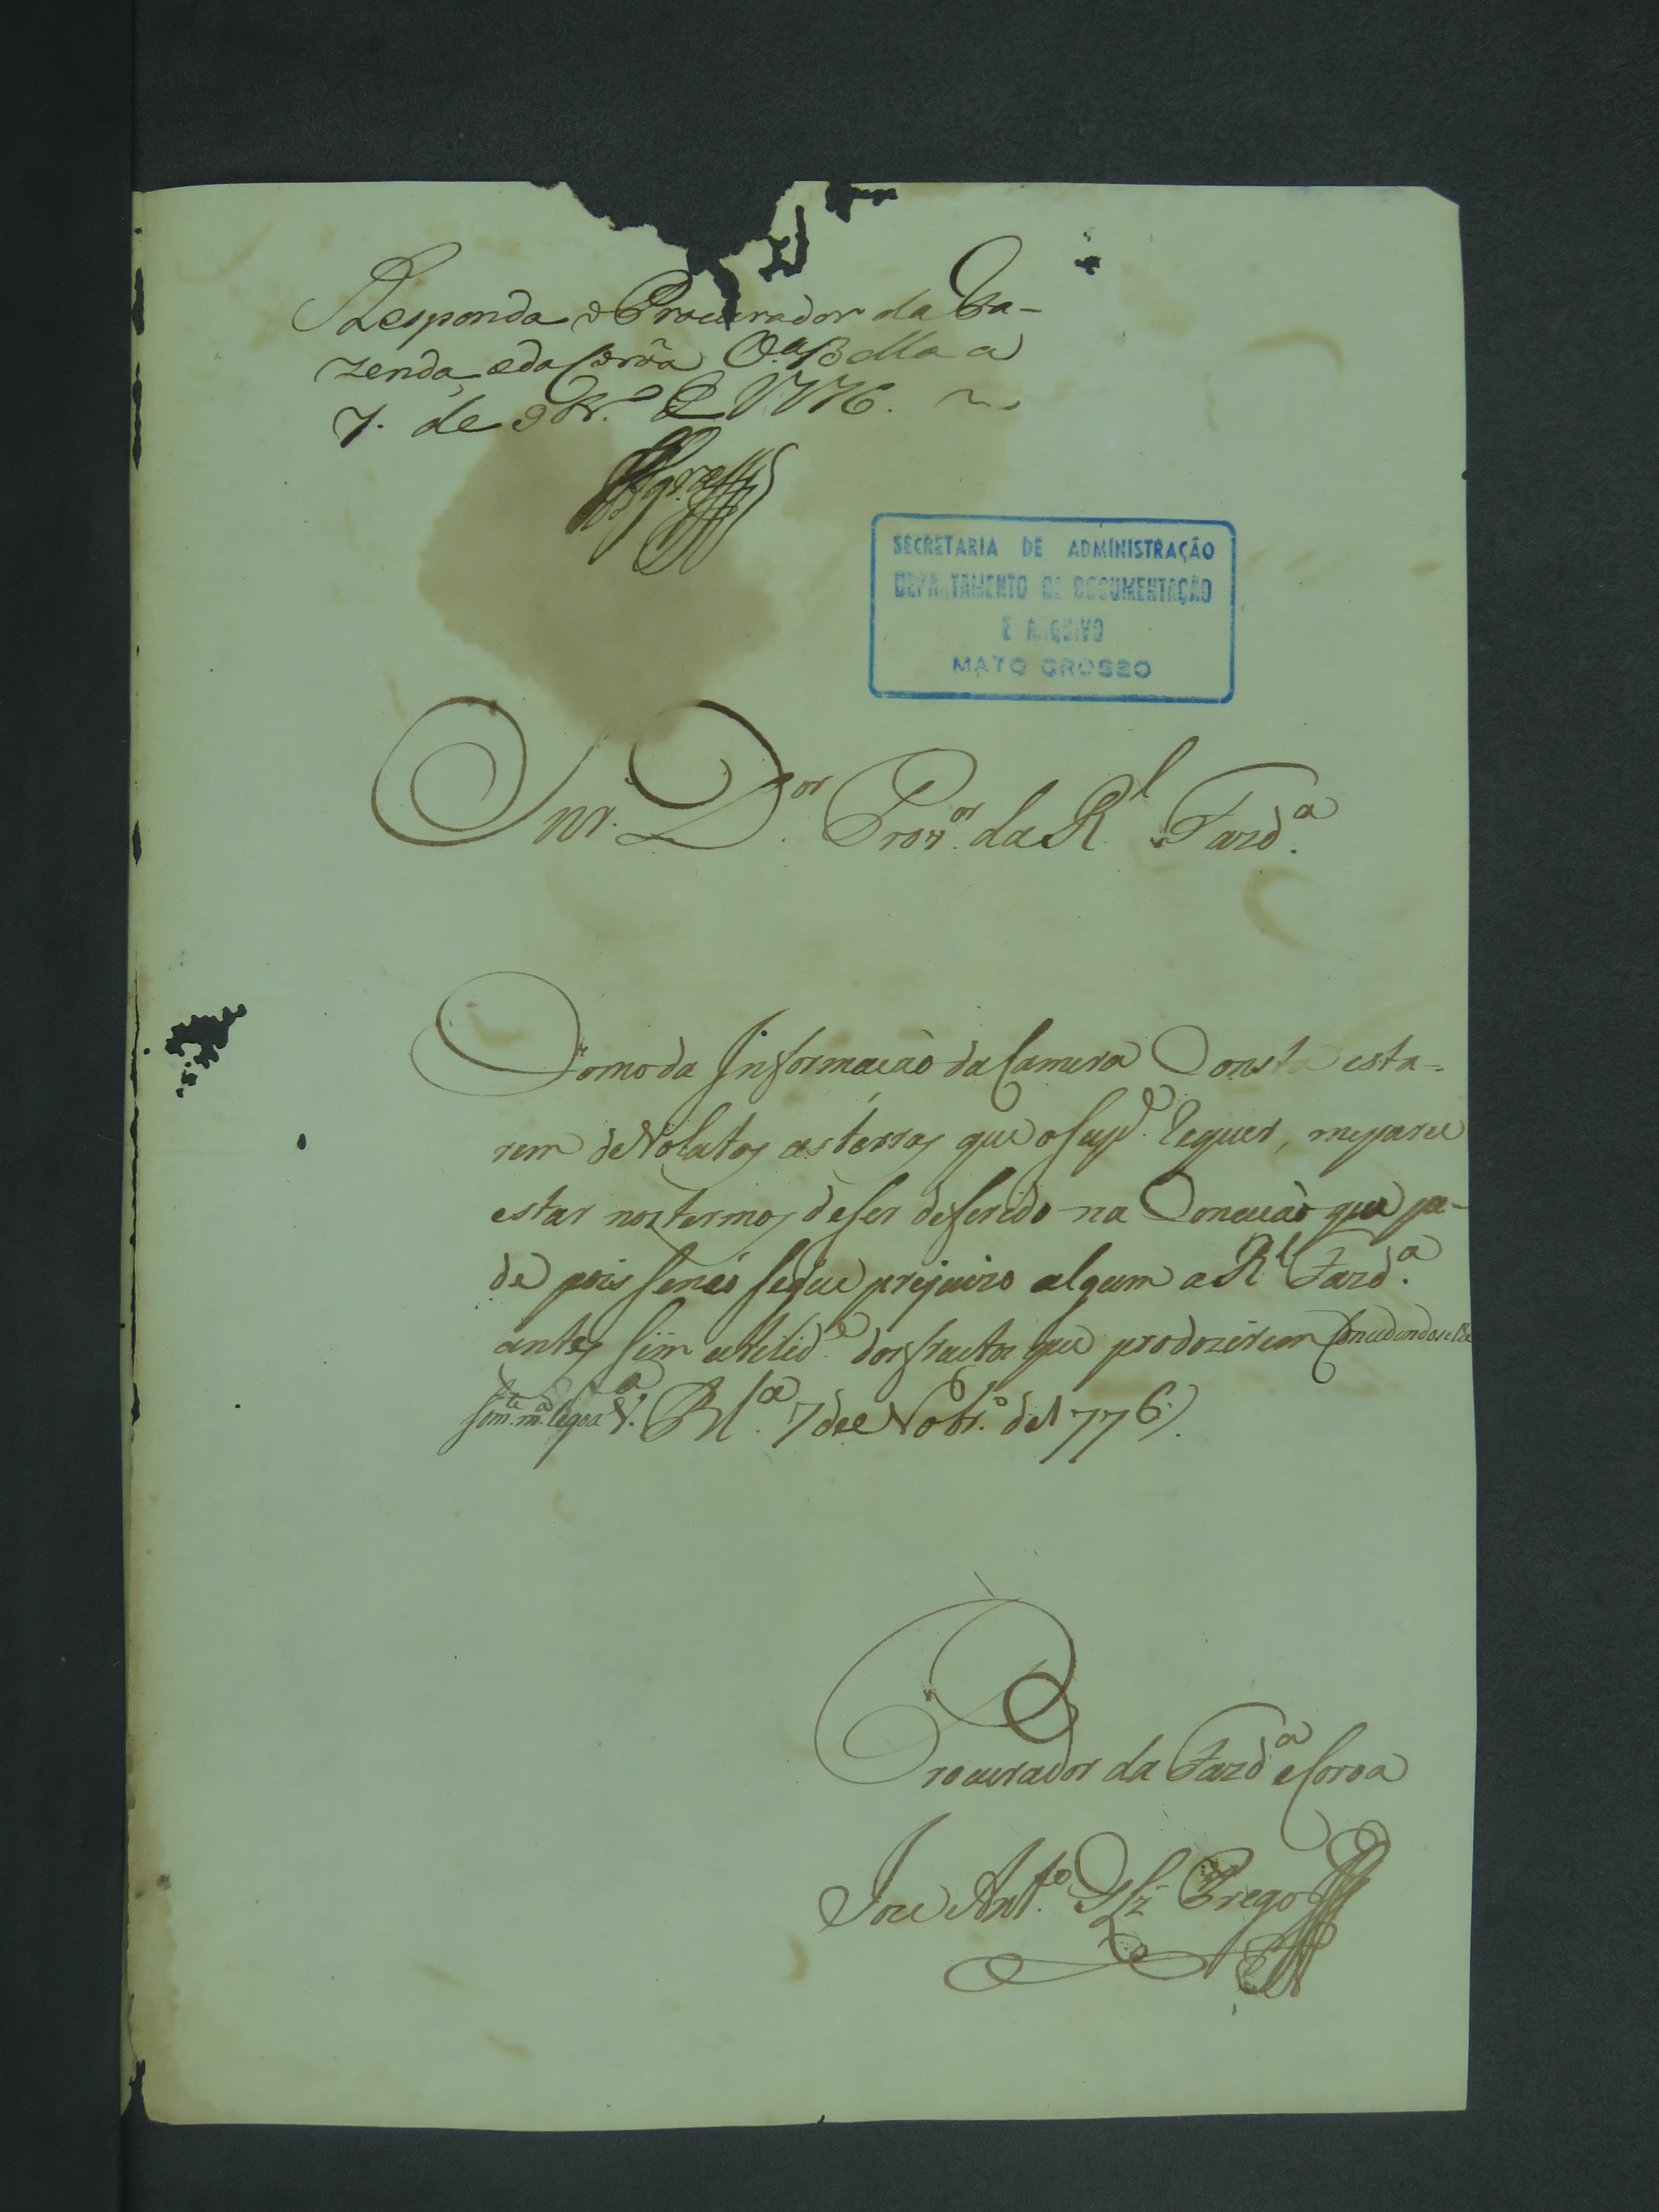 Responda o Procurador da Fa-
zenda, e da Corôa V.ª Bella a
7. de 9br.º de 1776.
SECRETARIA DE ADMINISTRAÇÃO
DEPARTAMENTO DE DOCUMENTAÇÃO
E ARQUIVO
MATO GROSSO
Snr. D.or Prov.or da R.l Fazd.ª
Como da Informacaõ da Camera Consta esta-
rem devolutos as terras que o Sup.e requer, me parece
estar nos termos de ser deferido na Concecaõ que pe-
de pois senaõ segue prejuizo algum a R.l Fazd.ª
antes sim utilid.e dos fructos que produzirem Concedendose lhe
som.te m.ª legoa V.ª Bl.ª 7 de Nobr.º de 1776.
Procurador da Fazd.ª e Coroa
Joze Ant.º Glz Prego